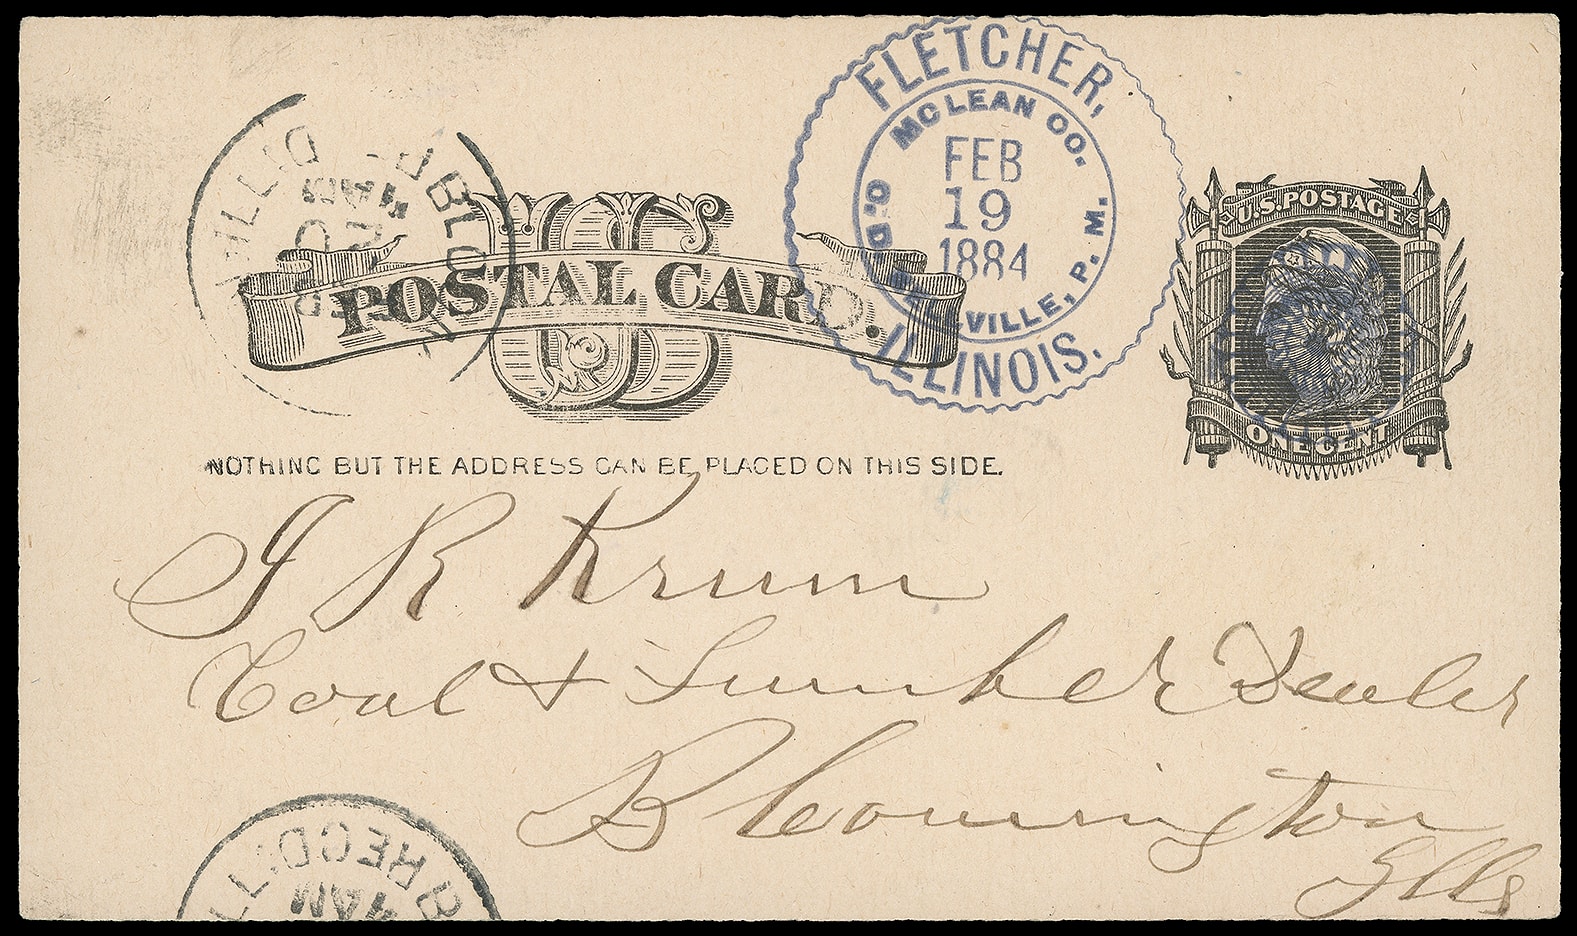 FLETCHER,
MCLEAN CO.
FEB
19
1884
O.D. VILLE, P. M.
ILLINOIS.
U.S. POSTAGE
ONE CENT
US
POSTAL CARD.
NOTHING BUT THE ADDRESS CAN BE PLACED ON THIS SIDE.
J R Krum
Coal & Lumber Dealer
Bloomington
Ills
REC'D.
AM